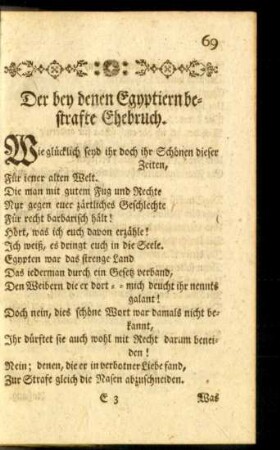 69
Der bey denen Egyptiern be-
strafte Ehebruch.
Wie glücklich seyd ihr doch ihr Schönen dieser
Zeiten,
Für iener alten Welt.
Die man mit gutem Fug und Rechte
Nur gegen euer zärtliches Geschlechte
Für recht barbarisch hält!
Hört, was ich euch davon erzähle!
Ich weiß, es dringt euch in die Seele.
Egypten war das strenge Land
Das iederman durch ein Gesetz verband,
Den Weibern die er dort - - mich deucht ihr nennts
galant!
Doch nein, dies schöne Wort war damals nicht be-
kannt,
Ihr dürftet sie auch wohl mit Recht darum benei-
den!
Nein; denen, die er in verbotner Liebe fand,
Zur Strafe gleich die Nasen abzuschneiden.
E 3 Was